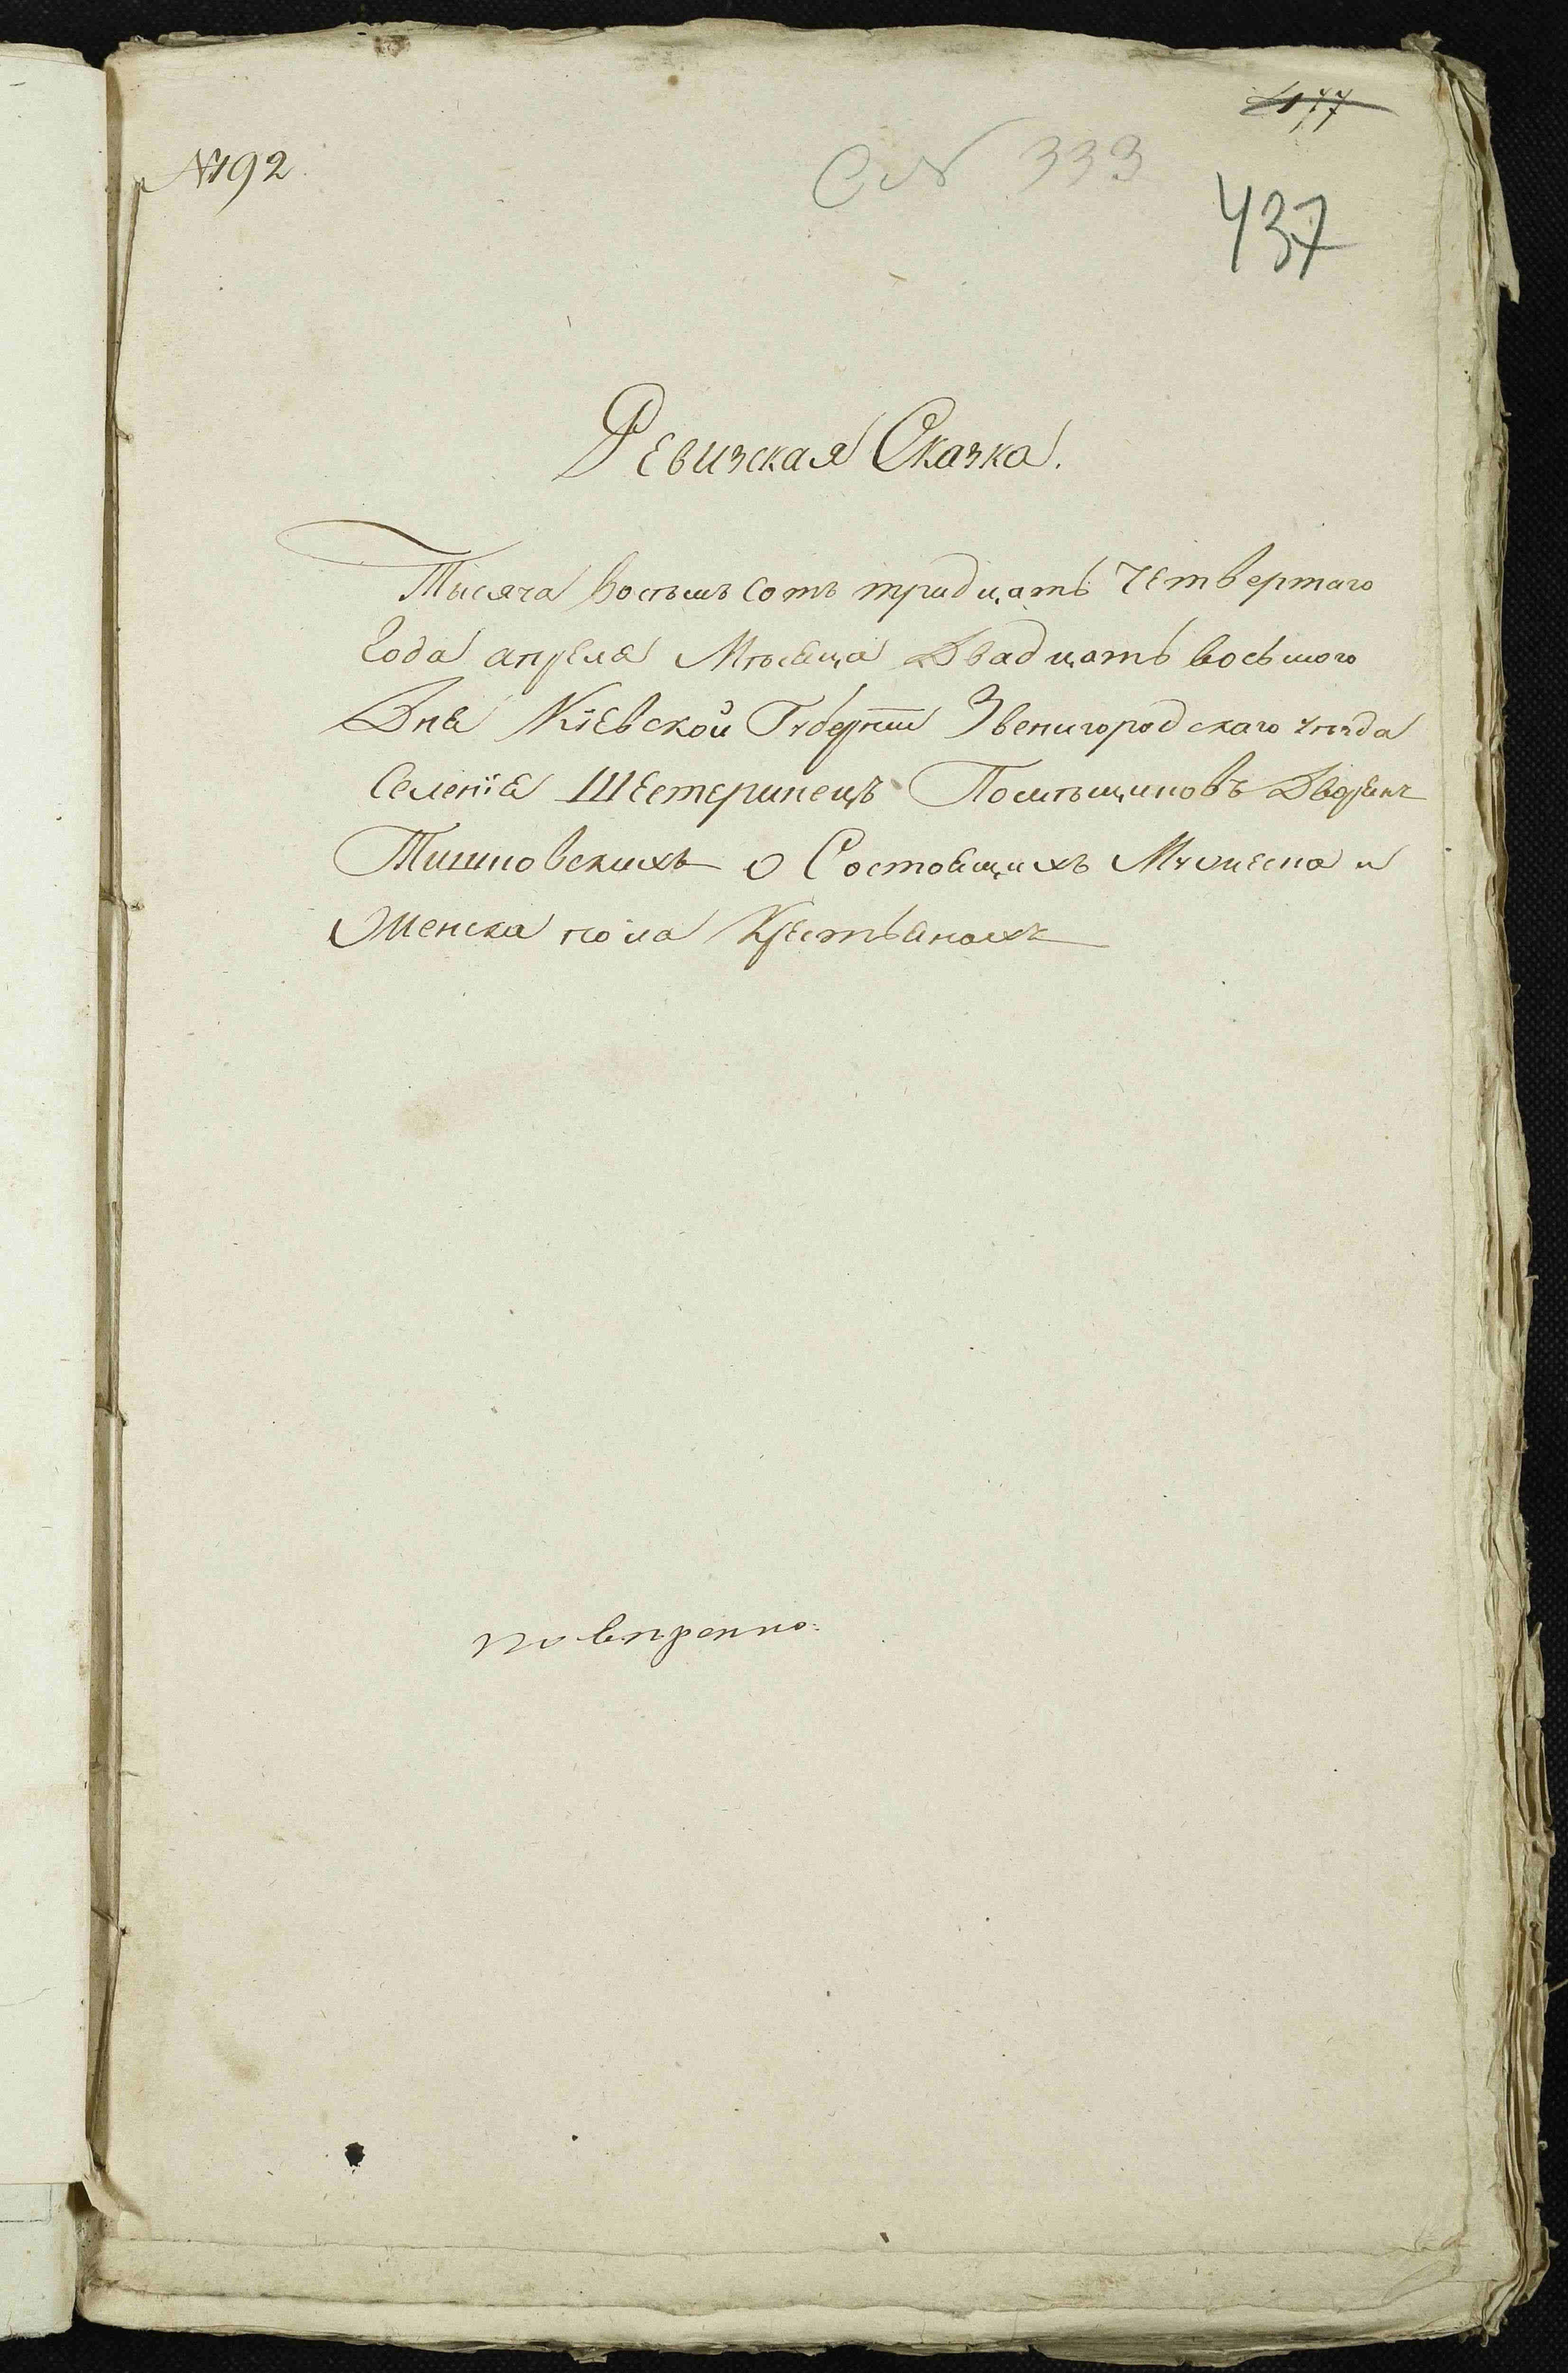 №192
С№ 333
437
Ревизская Сказка.
Тысяча восѣмь сотъ тридцать Четвертаго
Года апреля Мѣсяца Двадцать восьмого
Дня Кіевской Губерніи Звенигородскаго уѣзда
Селенія Шестеринецъ Помѣщиковъ Дворянъ
о Состоящихъ Мужеска и
Женска пола Крестьянахъ
повѣренно.